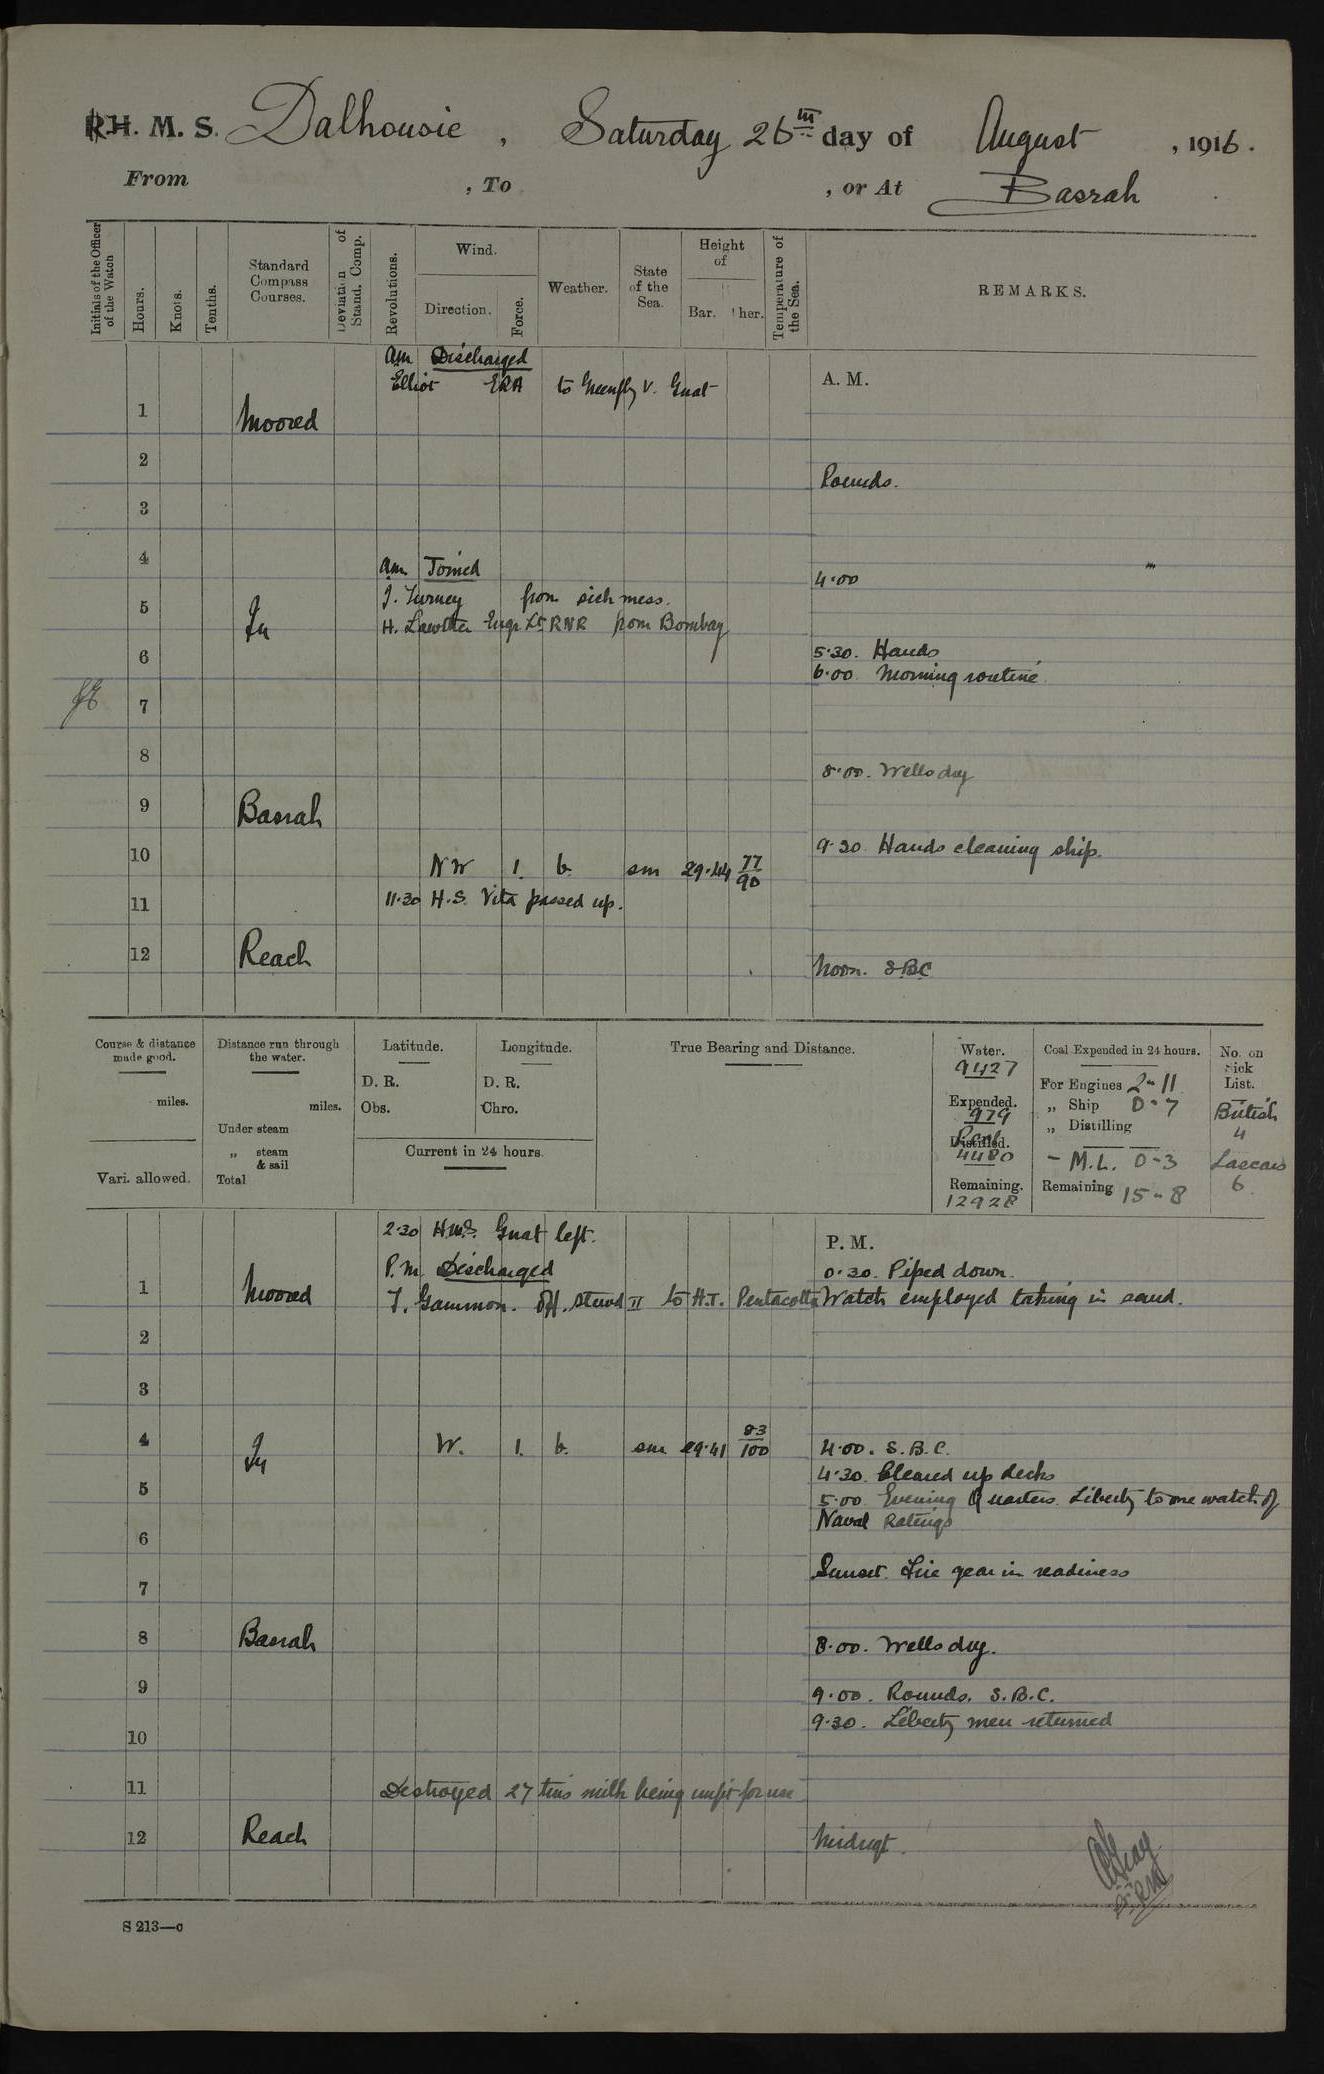 R.I.H. M. S. Dalhousie, Saturday 26th day of August, 1916.
From , To , or At Basrah
Initials of the Officer of the Watch
Hours.
Knots.
Tenths.
Standard Compass Courses.
Deviation of Stand. Comp.
Revolutions.
Wind.
Direction.
Force.
Weather.
State of the Sea.
Height of
Bar. Ther.
Temperature of the Sea.
REMARKS.
am Discharged
Elliot ERA to Greenfly v. Gnat
A. M.
1 Moored
2
Rounds.
3
4
am Joined
4.00
J. Turney from sick mess.
5 In
H. Lawther Engr Lt RNR from Bombay
5.30. Hands
6
6.00 Morning routine
7
8
8.00. Wells dry
9 Basrah
9.30 Hands cleaning ship.
10 NW 1. b. sm 29.44 77/90
11.30 H.S. Vita passed up.
11
12 Reach
Noon. SBC
Course & distance made good.
miles.
Vari. allowed.
Distance run through the water.
miles.
Under steam
„ steam & sail
Total
Latitude.
D. R.
Obs.
Longitude.
D. R.
Chro.
Current in 24 hours.
True Bearing and Distance.
Water.
9427
Expended.
979
Distilled.
4480
Remaining.
12928
Coal Expended in 24 hours.
For Engines 2-11
„ Ship 0-7
„ Distilling
- M.L. 0-3
Remaining 15-8
No. on Sick List.
British
4
Lascars
6
2.30 H.M.S. Gnat left.
P. M.
P.m Discharged
0.30. Piped down.
1 Moored
T. Gammon. Off. Stewd II to H.T. Pentacotta
Watch employed taking in sand.
2
3
4 In W. 1. b. sm 29.41 83/100
4.00. S.B.C.
4.30. Cleared up decks
5
5.00 Evening Quarters. Liberty to one watch of
Naval Ratings
6
Sunset. Fire gear in readiness
7
8 Basrah
8.00. Wells dry.
9
9.00. Rounds. S.B.C.
9.30. Liberty men returned
10
11
Destroyed 27 tins milk being unfit for use
12 Reach
Midngt.
S 213—c